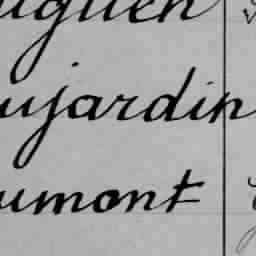 uguen
ujardin
umont